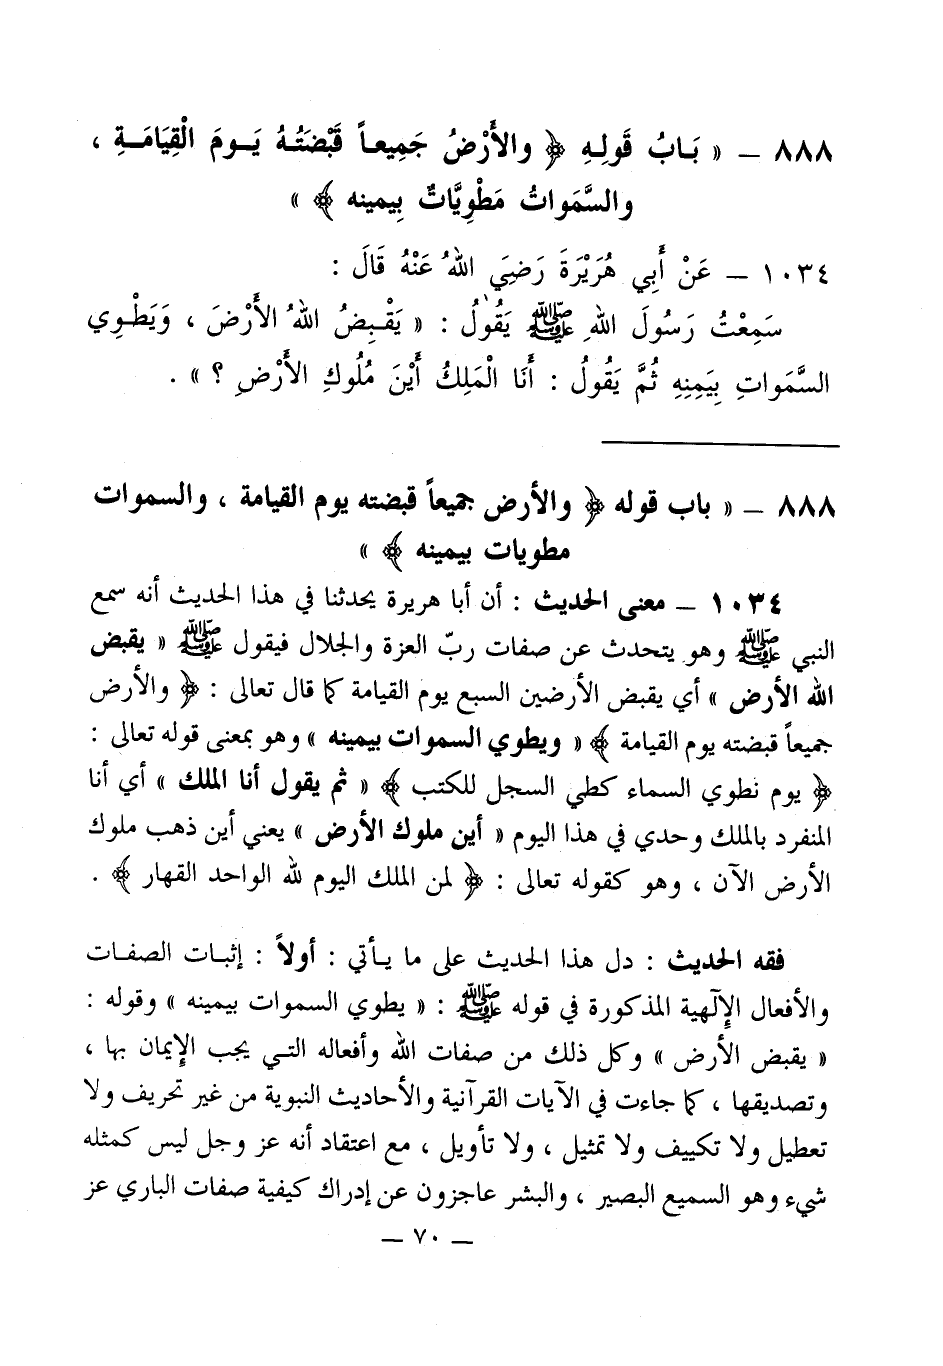 ٨٨٨ – « بَابُ قَولِهِ ﴿ والأَرْضُ جَمِيعاً قَبْضَتُهُ يَوْمَ الْقِيَامَةِ ،
والسَّمَواتُ مَطْوِيَّاتٌ بِيمينه ﴾ »
١٠٣٤ – عَنْ أَبِي هُرَيْرَةَ رَضِيَ اللهُ عَنْهُ قَالَ :
سَمِعْتُ رَسُولَ اللهِ ﷺ يَقُولُ : « يَقْبِضُ اللهُ الأَرْضَ ، وَيَطْوِي
السَّمَواتِ بِيَمِنِهِ ثُمَّ يَقُولُ : أَنَا الْمَلِكُ أَيْنَ مُلُوكِ الأَرْضِ ؟ » .
٨٨٨ – « باب قوله ﴿ والأرض جميعاً قبضته يوم القيامة ، والسموات
مطويات بيمينه ﴾ »
١٠٣٤ – معنى الحديث : أن أبا هريرة يحدثنا في هذا الحديث أنه سمع
النبي ﷺ وهو يتحدث عن صفات ربّ العزة والجلال فيقول ﷺ « يقبض
الله الأرض » أي يقبض الأرضين السبع يوم القيامة كما قال تعالى : ﴿ والأرض
جميعاً قبضته يوم القيامة ﴾ « ويطوي السموات بيمينه » وهو بمعنى قوله تعالى :
﴿ يوم نطوي السماء كطي السجل للكتب ﴾ « ثم يقول أنا الملك » أي أنا
المنفرد بالملك وحدي في هذا اليوم « أين ملوك الأرض » يعني أين ذهب ملوك
الأرض الآن ، وهو كقوله تعالى : ﴿ لمن الملك اليوم لله الواحد القهار ﴾ .
فقه الحديث : دل هذا الحديث على ما يأتي : أولاً : إثبات الصفات
والأفعال الإلهية المذكورة في قوله ﷺ : « يطوي السموات بيمينه » وقوله :
« يقبض الأرض » وكل ذلك من صفات الله وأفعاله التي يجب الإيمان بها ،
وتصديقها ، كما جاءت في الآيات القرآنية والأحاديث النبوية من غير تحريف ولا
تعطيل ولا تكييف ولا تمثيل ، ولا تأويل ، مع اعتقاد أنه عز وجل ليس كمثله
شيء وهو السميع البصير ، والبشر عاجزون عن إدراك كيفية صفات الباري عز
– ٧٠ –